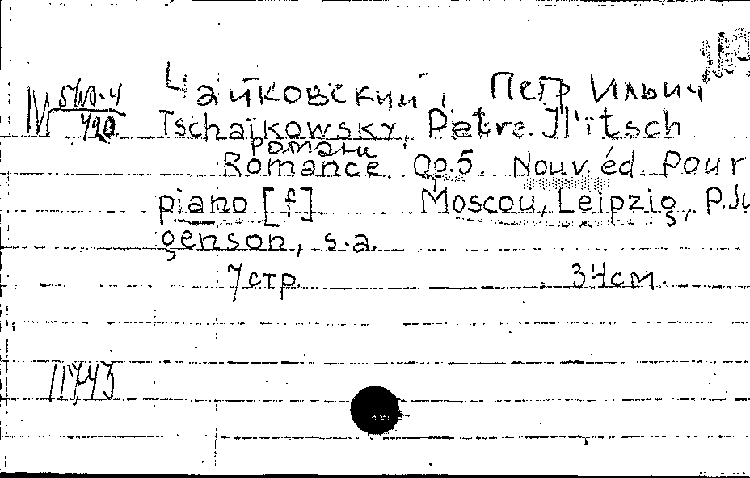 Чайковский, Петр Ильич
Tschaïkowsky, Petre. Jl'itsch
романи
Romance. Op.5. Nouv. éd. Pour
piano [f] Moscou, Leipzig, P. Ju
genson, s.a.
7 стр. 34 см.
11743